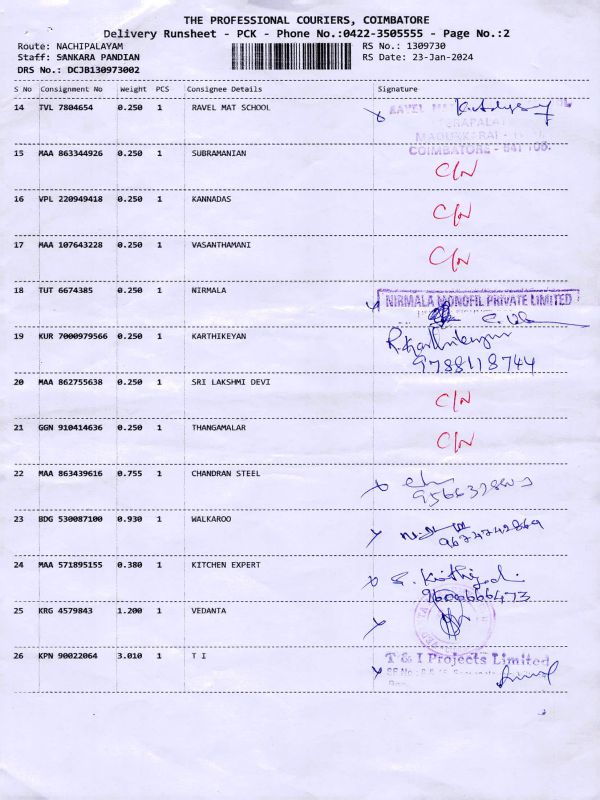 THE PROFESSIONAL COURIERS, COIMBATORE
Delivery Runsheet - PCK - Phone No.:0422-3505555 - Page No.:2
Route: NACHIPALAYAM RS No.: 1309730
Staff: SANKARA PANDIAN RS Date: 23-Jan-2024
DRS No.: DCJB130973002
S No Consignment No Weight PCS Consignee Details Signature
14 TVL 7804654 0.250 1 RAVEL MAT SCHOOL
COIMBATORE
15 MAA 863344926 0.250 1 SUBRAMANIAN
C/N
16 VPL 220949418 0.250 1 KANNADAS
C/N
17 MAA 107643228 0.250 1 VASANTHAMANI
C/N
18 TUT 6674385 0.250 1 NIRMALA
NIRMALA MONOFIL PRIVATE LIMITED
19 KUR 7000979566 0.250 1 KARTHIKEYAN
R.Karthikeyan
9788118744
20 MAA 862755638 0.250 1 SRI LAKSHMI DEVI
C/N
21 GGN 910414636 0.250 1 THANGAMALAR
C/N
22 MAA 863439616 0.755 1 CHANDRAN STEEL
23 BDG 530087100 0.930 1 WALKAROO
9674742869
24 MAA 571895155 0.380 1 KITCHEN EXPERT
9600666473
25 KRG 4579843 1.200 1 VEDANTA
26 KPN 90022064 3.010 1 T I
T & I Projects Limited